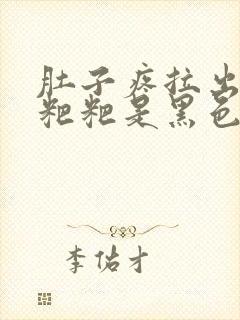 肚子疼拉出
粑粑是黑色
李佑才